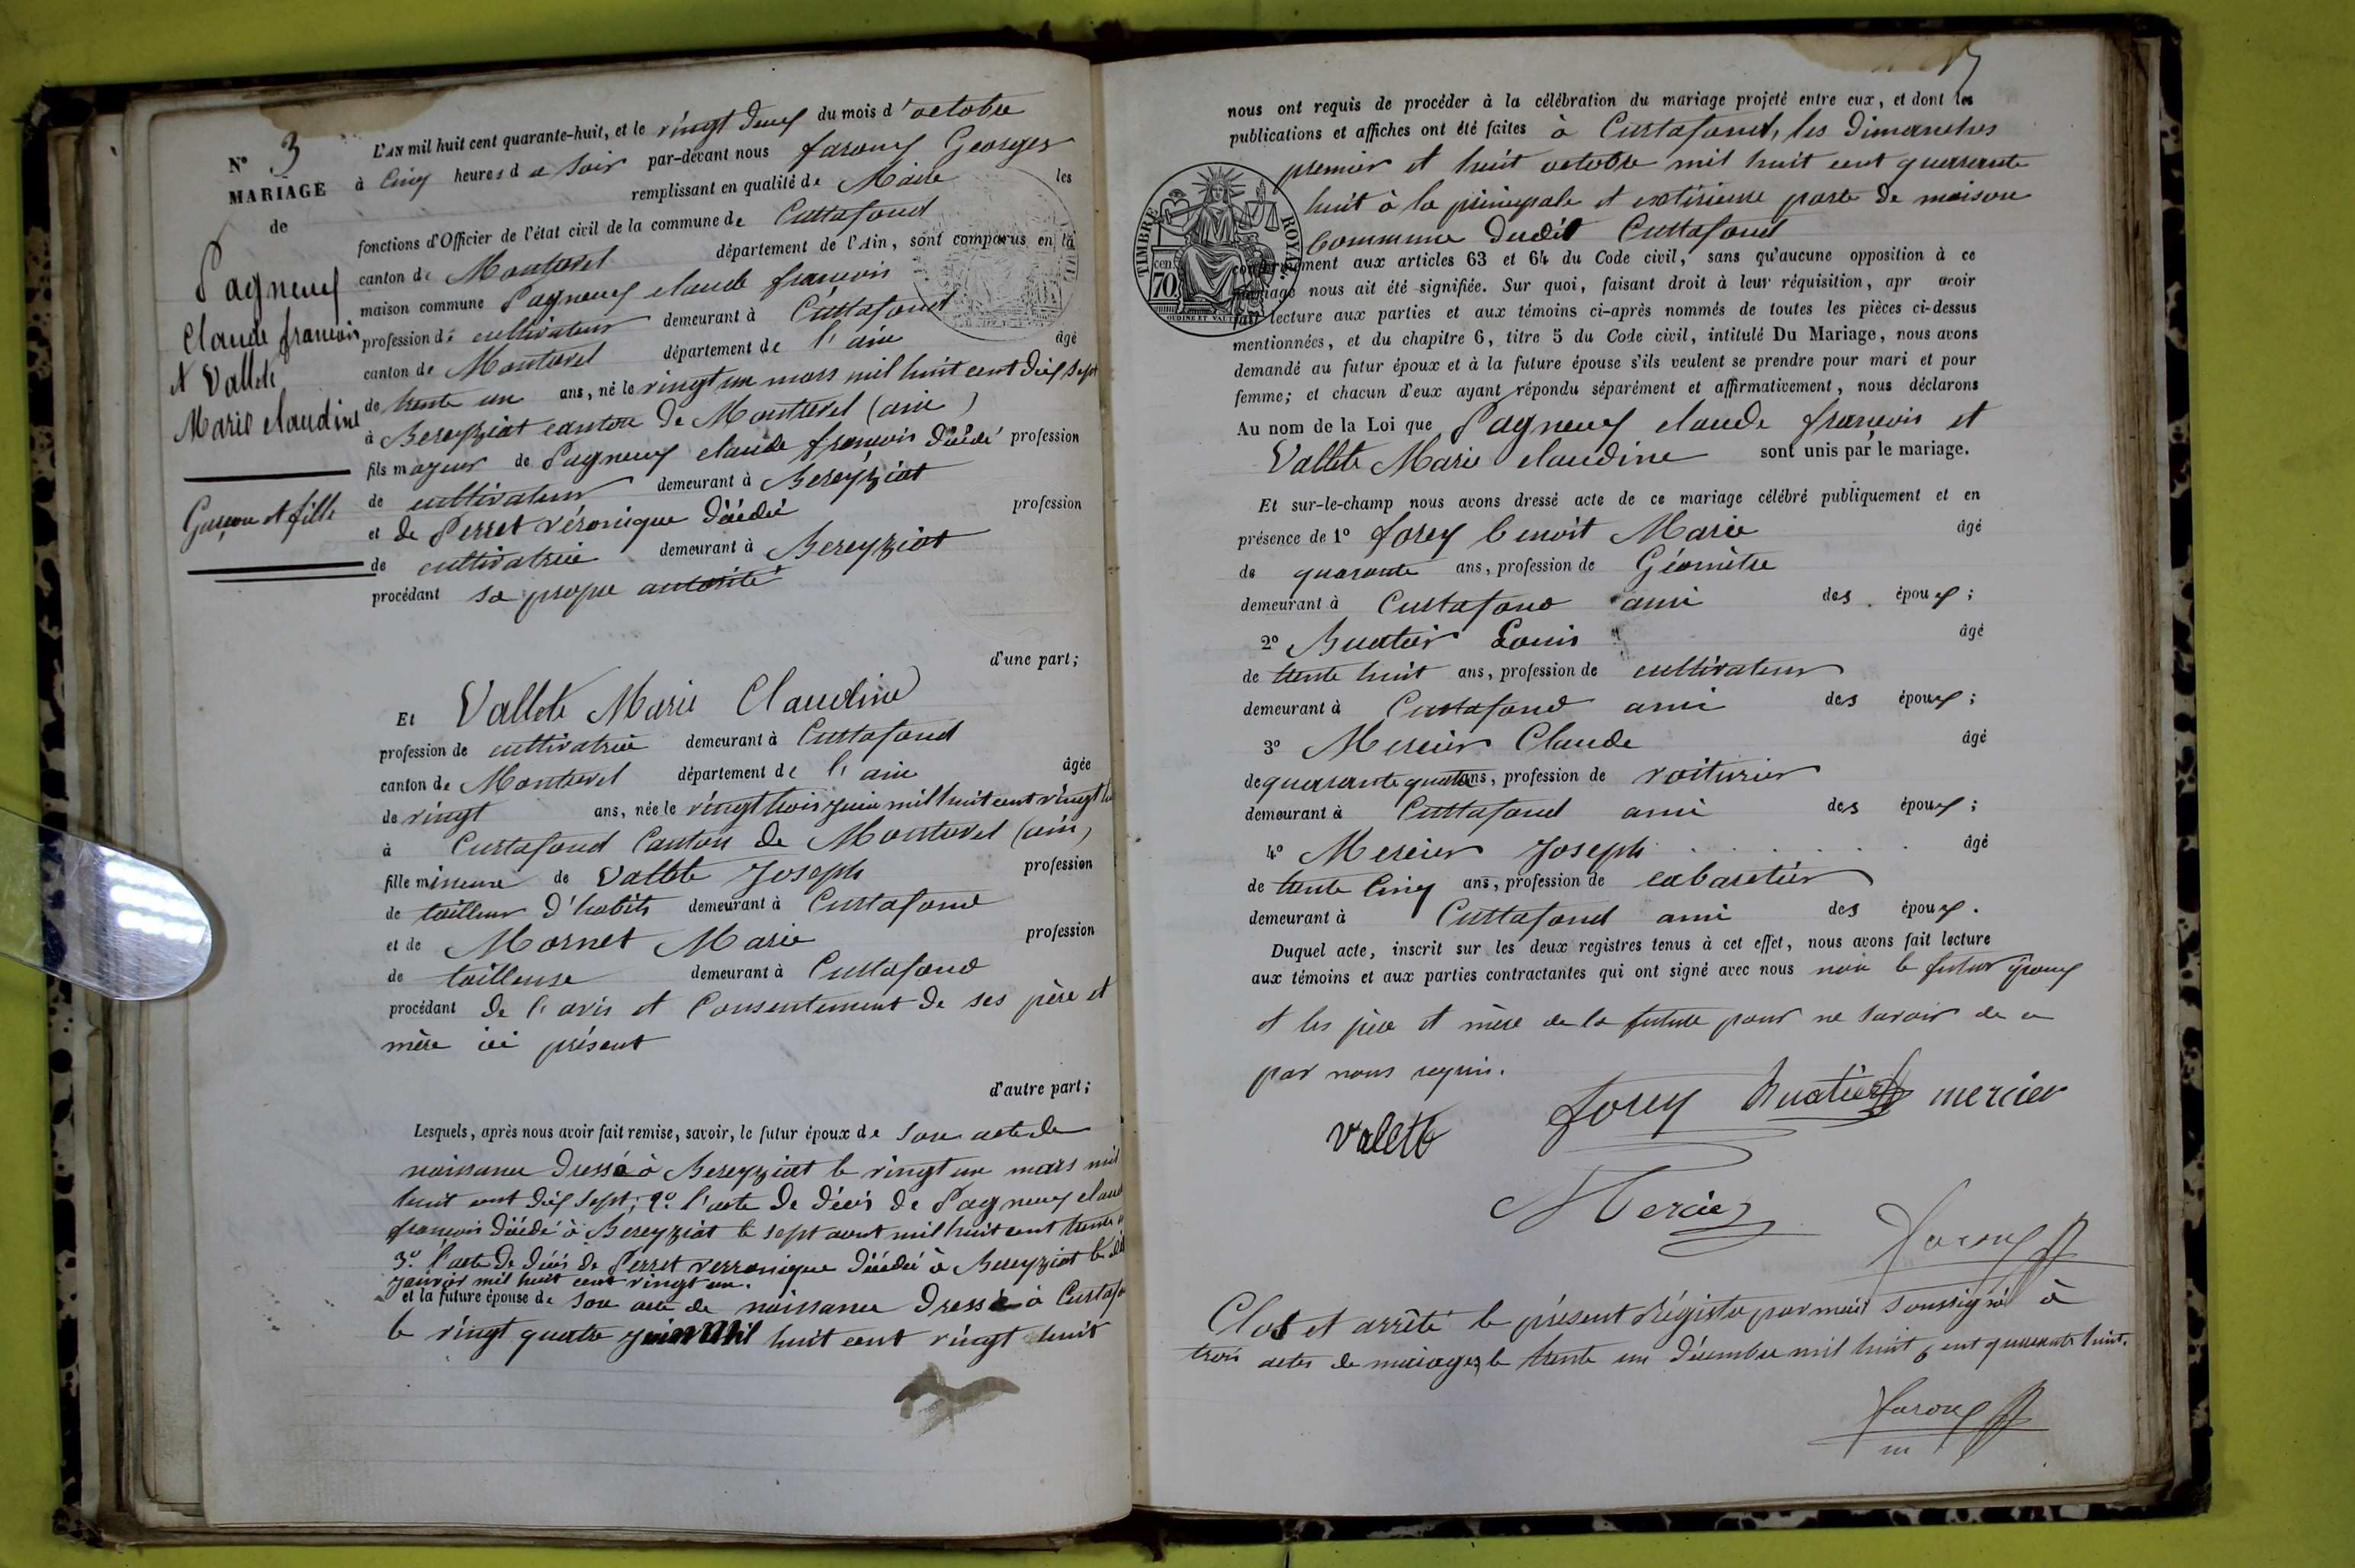 N° 3
MARIAGE
de
Pagneux
Claude françois
et Vallete
Marie claudine
Garçon et fille
L'AN mil huit cent quarante-huit, et le vingt deux du mois d'octobre
à Cinq heures d u soir par-devant nous faroux Georges
remplissant en qualité de Maire les
fonctions d'Officier de l'état civil de la commune de Curtafond
canton de Montrevel département de l'Ain, sont comparus en la
maison commune Pagneux claude françois
profession de cultivateur demeurant à Curtafond
canton de Montrevel département de l'ain âgé
de trente un ans, né le vingt un mars mil huit cent dix sept
à Bereyziat canton de Montrevel (ain)
fils majeur de Pagneux claude françois décédé profession
de cultivateur demeurant à Bereyziat
et de Perret véronique décédée profession
de cultivatrice demeurant à Bereyziat
procédant sa propre autorité
d'une part;
Et Vallete Marie Claudine
profession de cultivatrice demeurant à Curtafond
canton de Montrevel département de l'ain âgée
de vingt ans, née le vingt trois juin mil huit cent vingt
à Curtafond Canton de Montrevel (ain)
fille mineure de Vallete Joseph profession
de tailleur d'habits demeurant à Curtafond
et de Mornet Marie profession
de tailleuse demeurant à Curtafond
procédant de l'avis et Consentement de ses père et
mère ici présent
d'autre part;
Lesquels, après nous avoir fait remise, savoir, le futur époux de son acte de
naissance dressé à Bereyziat le vingt un mars mil
huit cent dix sept; 2° l'acte de décès de Pagneux claude
françois décédé à Bereyziat le sept aout mil huit cent trente
3° l'acte de décès de Perret verronique décédée à Bereyziat le
janvier mil huit cent vingt un.
et la future épouse de son acte de naissance dressé à Curtafo
le vingt quatre juin mil huit cent vingt huit
nous ont requis de procéder à la célébration du mariage projeté entre eux, et dont les
publications et affiches ont été faites à Curtafond, les dimanches
premier et huit octobre mil huit cent quarante
huit à la principale et extérieure porte de maison
Commune dudit Curtafond
TIMBRE ROYAL
cen. 70
OUDINE ET VAUT
conformément aux articles 63 et 64 du Code civil, sans qu'aucune opposition à ce
mariage nous ait été signifiée. Sur quoi, faisant droit à leur réquisition, apr avoir
fait lecture aux parties et aux témoins ci-après nommés de toutes les pièces ci-dessus
mentionnées, et du chapitre 6, titre 5 du Code civil, intitulé Du Mariage, nous avons
demandé au futur époux et à la future épouse s'ils veulent se prendre pour mari et pour
femme; et chacun d'eux ayant répondu séparément et affirmativement, nous déclarons
Au nom de la Loi que Pagneux claude françois et
Vallete Marie claudine sont unis par le mariage.
Et sur-le-champ nous avons dressé acte de ce mariage célébré publiquement et en
présence de 1° forey benoit Marie âgé
de quarante ans, profession de Géomètre
demeurant à Curtafond ami des époux;
2° Buatier Louis âgé
de trente huit ans, profession de cultivateur
demeurant à Curtafond ami des époux;
3° Mercier Claude âgé
de quarante quatre ans, profession de voiturier
demeurant à Curtafond ami des époux;
4° Mercier Joseph . . . . . . . âgé
de trente Cinq ans, profession de cabaretier
demeurant à Curtafond ami des époux.
Duquel acte, inscrit sur les deux registres tenus à cet effet, nous avons fait lecture
aux témoins et aux parties contractantes qui ont signé avec nous non le futur époux
et les père et mère de la future pour ne savoir de ce
par nous requis.
forey Buatier mercier
valette
Mercier
faroux
Clos et arrêté le présent Régistre par nous soussigné à
trois actes de mariages le trente un décembre mil huit cent quarante huit.
faroux
m